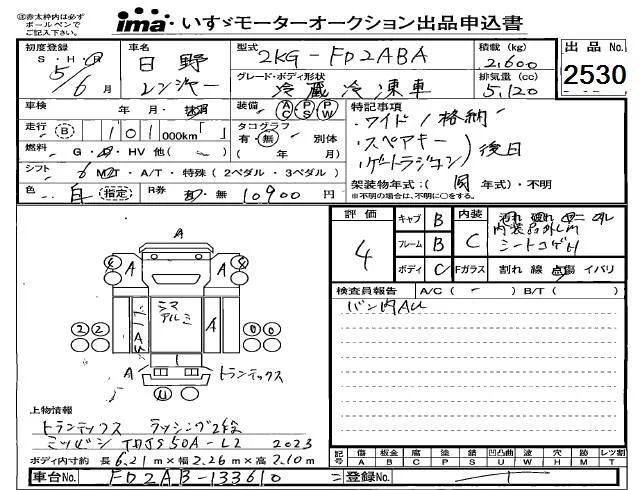 ㊟赤太枠内は必ず
ボールペンで
ご記入下さい。
ima いすゞモーターオークション出品申込書
初度登録
S・H・R
5/6月
車名
日野
レンジャー
型式
2KG-FD2ABA
グレード・ボディ形状
冷蔵冷凍車
積載 (kg)
2,600
排気量 (cc)
5,120
出品 No.
2530
車検 年・月・抹消
装備 AC PS PW
走行 (B) 101 000km「 」
タコグラフ
有・無 別体
( 年 月)
燃料 G・D・HV 他( )
シフト 6 MT・A/T・特殊(2ペダル・3ペダル)
色 白 (指定) R券 有・無 10900円
特記事項
・ワイド/格納
・スペアキー
・ゲートラジコン)後日
架装物年式:( 同 年式)・不明
※不明の場合は、不明に○をする。
評価
4
キャブ B
フレーム B
ボディ C
内装
C
シートコゲH
Fガラス 割れ 線 点傷 イバリ
検査員報告 A/C( - ) B/T( )
バン内AU
A
4 4
A A
シマ
アルミ
A
2 2
A
トランテックス
上物情報
トランテックス ラッシング2段
ミツビシ TDJS50A-L2 2023
ボディ内寸約 長 6.21m×幅 2.26m×高 2.10m
記号 傷 板金 腐 塗 錆 凹凸曲 波 穴 跡 レツ割
A B C P S U W H M T
車台No. FD2AB-133610
登録No.